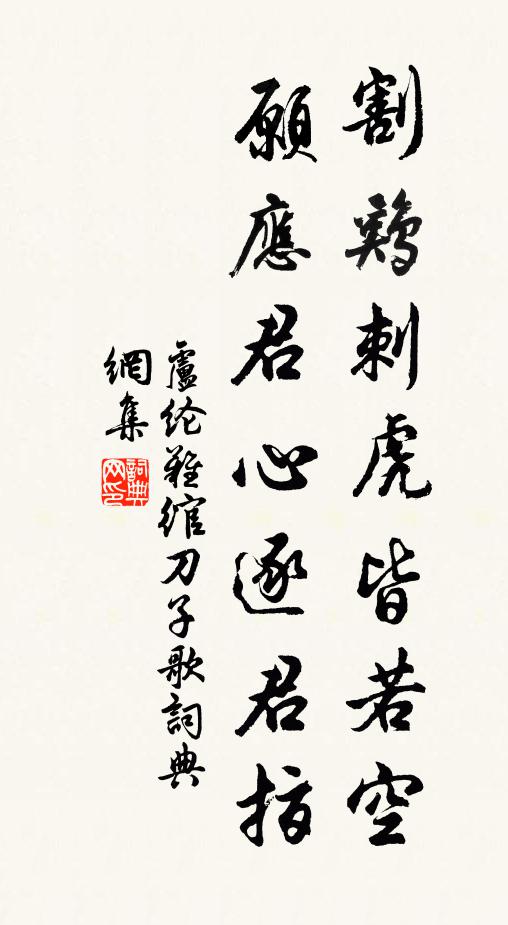 割鷄刺虎皆若空
願應君心逐君指
盧纶難綰刀子歌詞典
網集
詞典
网印